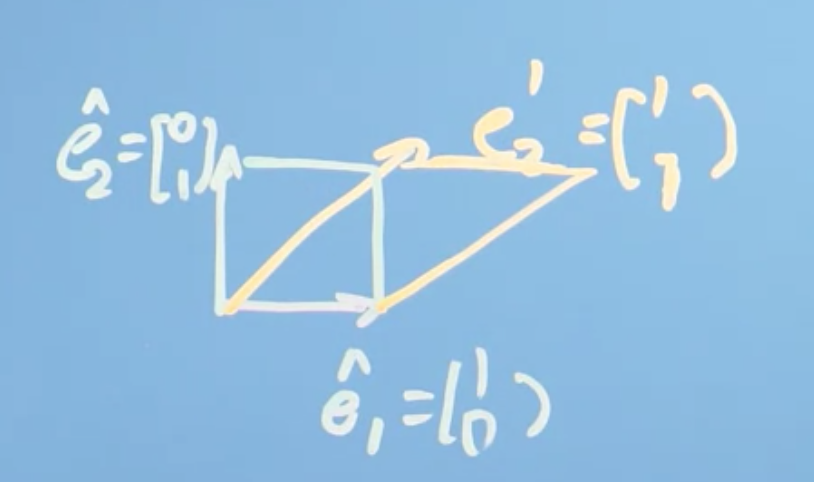 ê₂=[0 1]
e₂'=(1 1)
ê₁=(1 0)